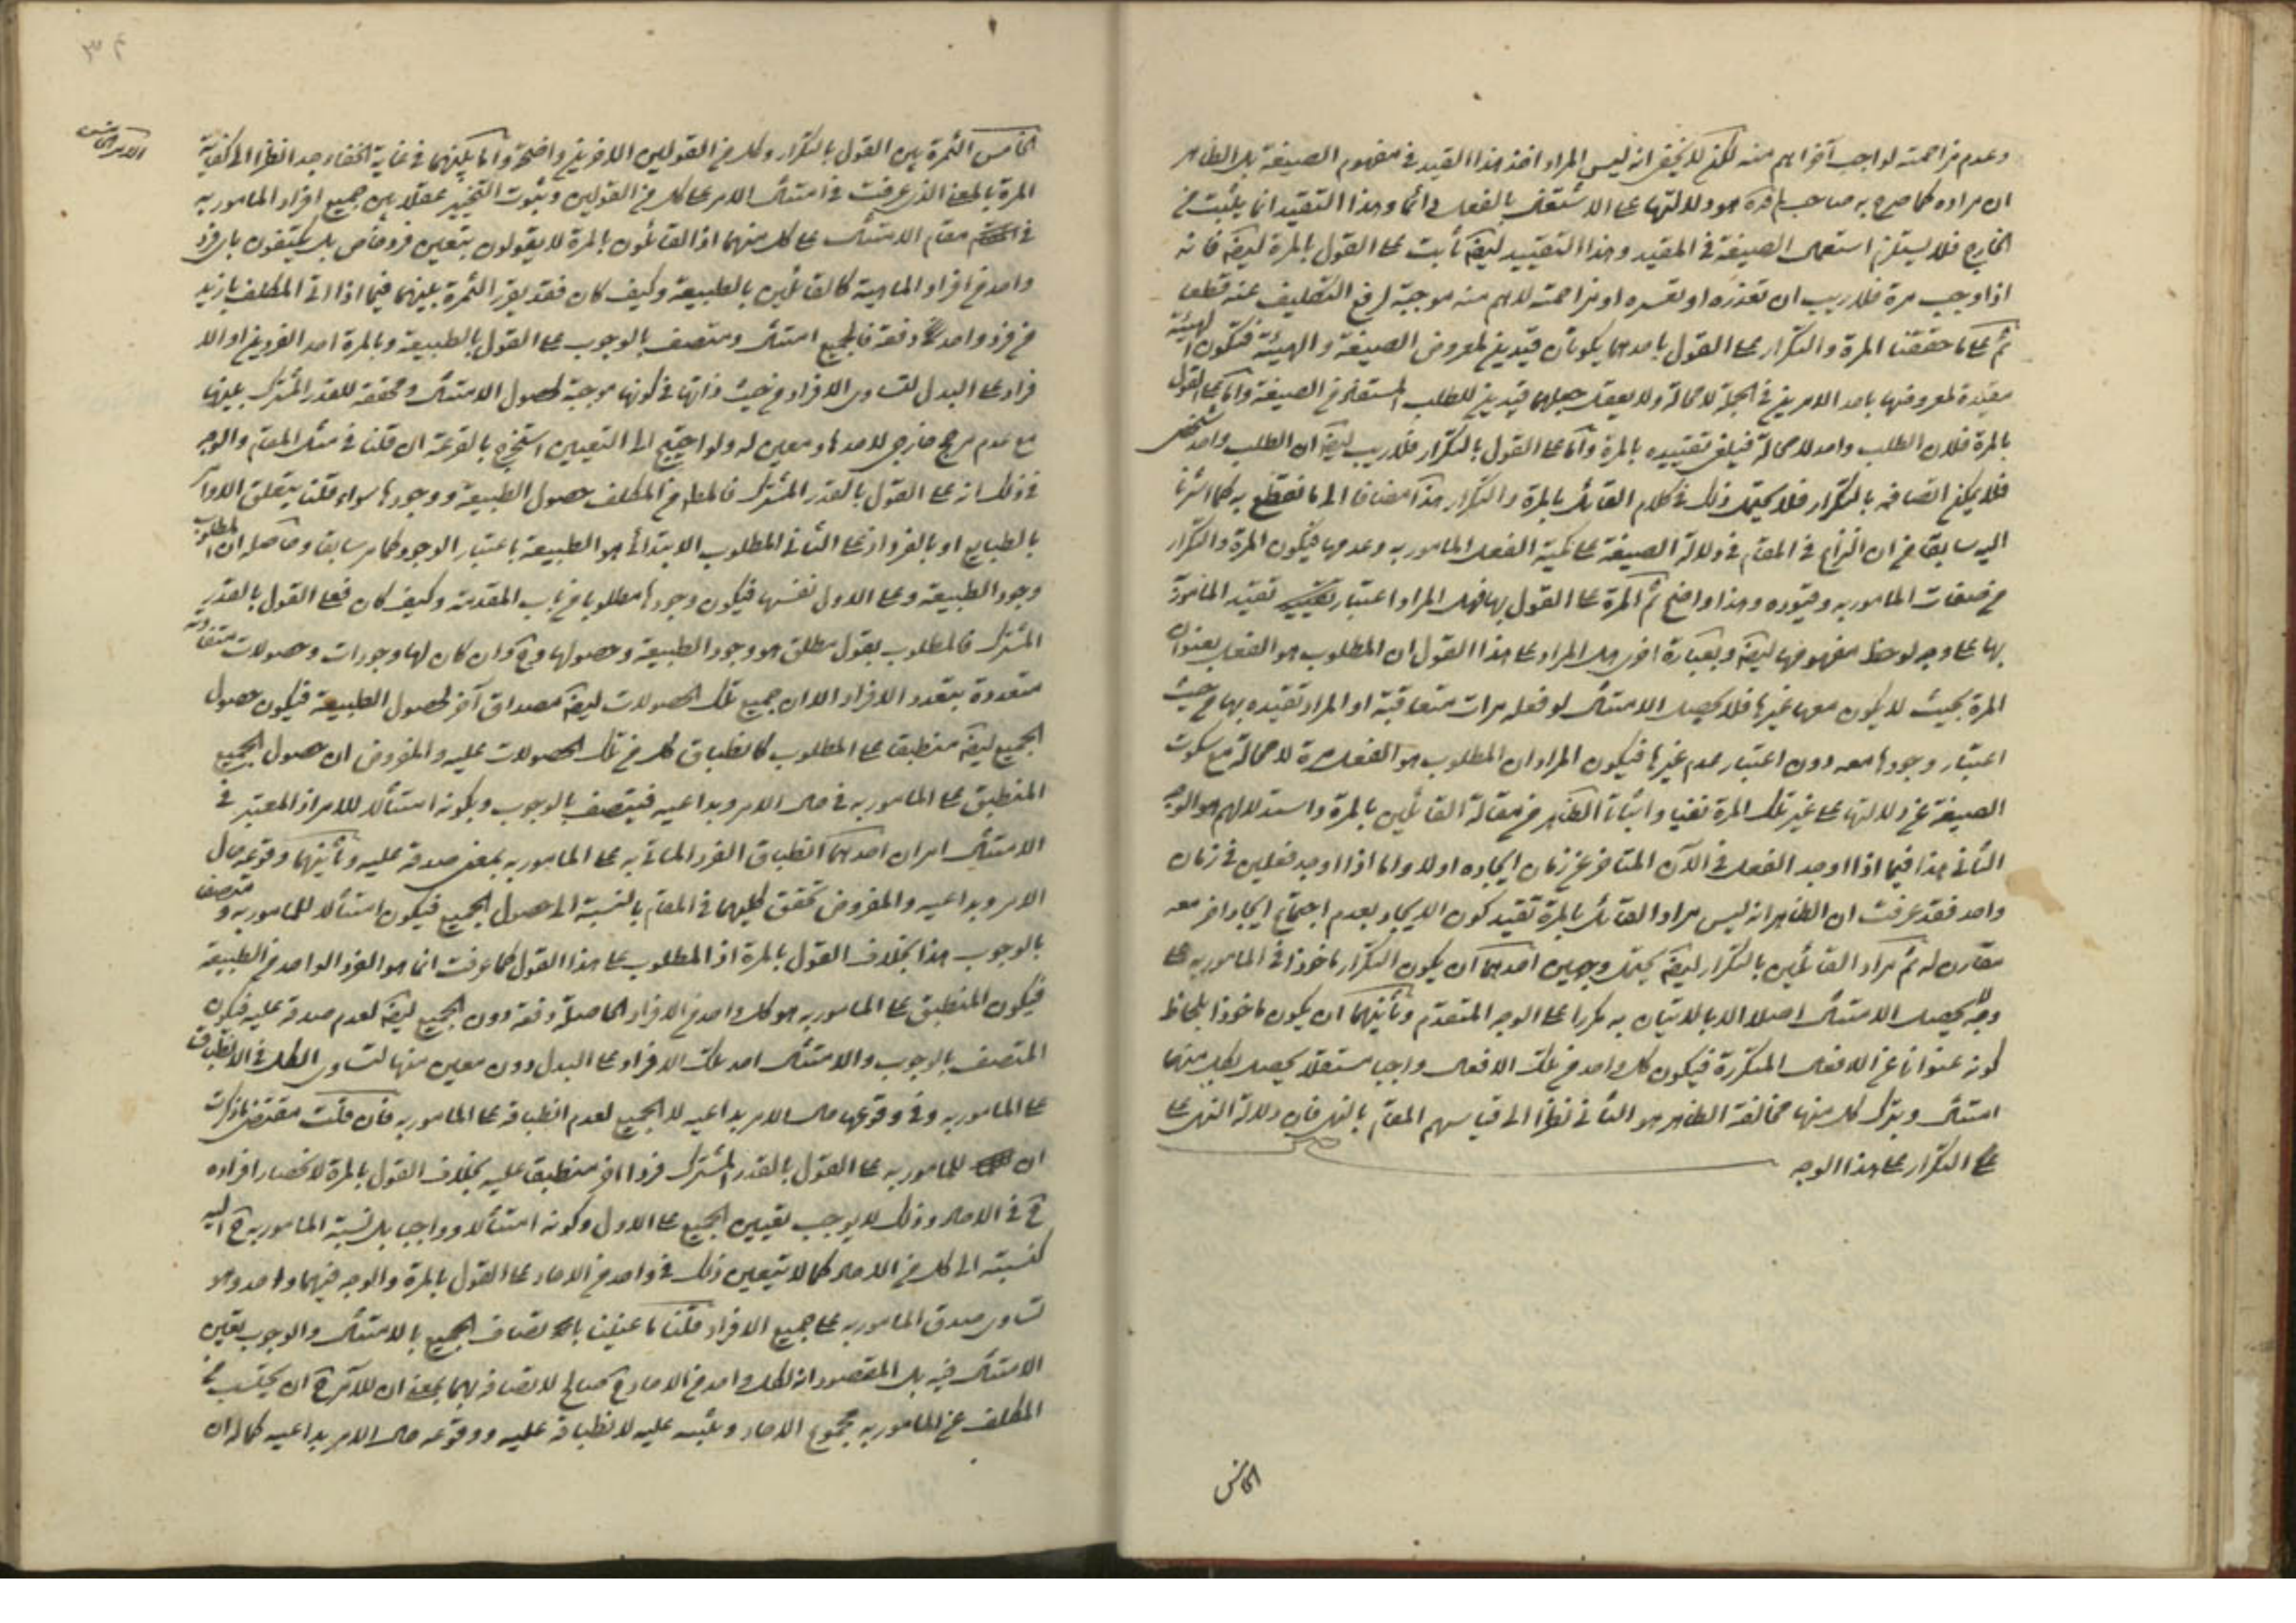 وعدم مزاحمته لواجب آخر اهم منه لكن لا يخفى انه ليس المراد اخذ هذا القيد في مفهوم الصيغة بل الظاهر
ان مراده كما صرح به صاحب هو دلالتها على الاشتغال بالفعل دائما وهذا التقييد انما يثبت من
الخارج فلا يستلزم استعمال الصيغة في المقيد وهذا التقييد ايضا ثابت على القول بالمرة ايضا فانه
اذا وجب مرة فلا ريب ان تعذره او تعسره او مزاحمته لاهم منه موجبة لرفع التكليف عنه قطعا
ثم على ما حققنا المرة والتكرار على القول باحدهما يكونان قيدين لمعروض الصيغة والهيئة فتكون الهيئة
مقيدة لمعروضها باحد الامرين في الجملة لا محالة ولا يعقل جعلهما قيدين للطلب المستفاد من الصيغة واما على القول
بالمرة فلان الطلب واحد لا محالة فيلغى تقييده بالمرة واما على القول بالتكرار فلا ريب ايضا ان الطلب واحد شخصي
فلا يمكن اتصافه بالتكرار فلا يحتمل ذلك في كلام القائل بالمرة والتكرار هذا مضافا الى ما نقطع به كما اشرنا
اليه سابقا من ان النزاع في المقام في دلالة الصيغة على كمية الفعل المامور به وعدمها فيكون المرة والتكرار
من صفات المامور به وقيوده وهذا واضح ثم المرة على القول بها فهل المراد اعتبار تقيد الماموربه
بها على وجه لوحظ مفهومها ايضا وبعبارة اخرى هل المراد على هذا القول ان المطلوب هو الفعل بعنوان
المرة بحيث لا يكون معها غيرها فلا يحصل الامتثال لو فعله مرات متعاقبة او المراد تقيده بها من حيث
اعتبار وجودها معه دون اعتبار عدم غيرها فيكون المراد ان المطلوب هو الفعل مرة لا محالة مع سكوت
الصيغة عن دلالتها على غير تلك المرة نفيا واثباتا الظاهر من مقالة القائلين بالمرة واستدلالهم هو الوجه
الثاني هذا فيما اذا اوجد الفعل في الآن المتاخر عن زمان ايجاده اولا واما اذا اوجد فعلين في زمان
واحد فقد عرفت ان الظاهر انه ليس مراد القائل بالمرة تقيد كون الايجاد بعدم اجتماع ايجاد اخر معه
مقارن له ثم مراد القائلين بالتكرار ايضا يحتمل وجهين احدهما ان يكون التكرار ماخوذا في المامور به على
وجه لا يحصل الامتثال اصلا الا بالاتيان به مكررا على الوجه المتقدم وثانيهما ان يكون ماخوذا بلحاظ
كونه عنوانا عن الافعال المتكررة فيكون كل واحد من تلك الافعال واجبا مستقلا يحصل بكل منها
امتثال وبترك كل منها مخالفة الظاهر هو الثاني نظرا الى قياسهم المقام بالنهي فان دلالة النهي على
على التكرار على هذا الوجه
الخامس
الامر الخامس
الخامس الثمرة بين القول بالتكرار وكل من القولين الاخرين واضحة واما بينهما في غاية الخفاء جدا نظرا الى كفاية
المرة بالمعنى الذي عرفت في امتثال الامر على كل من القولين وثبوت التخيير عقلا بين جميع افراد المامور به
في مقام الامتثال على كل منهما اذ القائلون بالمرة لا يقولون بتعين فرد خاص بل يكتفون باي فرد
واحد من افراد الماهية كالقائلين بالطبيعة وكيف كان فقد يقرر الثمرة بينهما فيما اذا اتى المكلف بازيد
من فرد واحد دفعة فالجميع امتثال ومتصف بالوجوب على القول بالطبيعة وبالمرة احد الفردين او الا
فراد على البدل لتساوي الافراد من حيث ذاتها في كونها موجبة لحصول الامتثال ومحققة للقدر المشترك بينها
مع عدم مرجح خارجي لاحدها ومعين له ولو احتيج الى التعيين استخرج بالقرعة ان قلنا في مثل المقام والوجه
في ذلك انه على القول بالقدر المشترك فالمط من المكلف حصول الطبيعة ووجودها سواء قلنا بتعلق الاوامر
بالطبايع او بالفرد اذ على الثاني المطلوب الابتدائي هو الطبيعة باعتبار الوجود كما مر سابقا وحاصله ان المطلوب
وجود الطبيعة وعلى الاول نفسها فيكون وجودها مطلوبا من باب المقدمة وكيف كان فعلى القول بالقدر
المشترك فالمطلوب بقول مطلق هو وجود الطبيعة وحصولها وح وان كان لها وجودات وحصولات متفاوتة
متعددة بتعدد الافراد الا ان جميع تلك الحصولات ايضا مصداق آخر لحصول الطبيعة فيكون حصول
الجميع ايضا منطبق على المطلوب كانطباق كل من تلك الحصولات عليه والمفروض ان حصول الجميع
المنطبق على المامور به في حال الامر وبداعيه فيتصف بالوجوب وبكونه امتثالا للامر اذ المعتبر في
الامتثال امران احدهما انطباق الفرد الماتي به على المامور به بمعنى صدقه عليه وثانيهما وقوعه حال
الامر وبداعيه والمفروض تحقق كليهما في المقام بالنسبة الى حصول الجميع فيكون امتثالا للمامور به ومتصفا
بالوجوب هذا بخلاف القول بالمرة اذ المطلوب على هذا القول كما عرفت انما هو الفرد الواحد من الطبيعة
فيكون المنطبق على المامور به هو كل واحد من الافراد الحاصلة دفعة دون الجميع ايضا لعدم صدقه عليه فيكون
المتصف بالوجوب والامتثال احد تلك الافراد على البدل دون معين منها لتساوي الكل في الانطباق
على المامور به وفي وقوعها حال الامر بداعيه لا الجميع لعدم انطباقه على المامور به فان قلت مقتضى ما ذكرت
ان للمامور به على القول بالقدر المشترك فردا اخر منطبق عليه بخلاف القول بالمرة لانحصار افراده
ح في الاحاد وذلك لا يوجب تعيين الجميع على الاول وكونه امتثالا وواجبا بل نسبة المامور به ح اليه
كنسبته الى كل من الاحاد كما لا يتعين ذلك في واحد من الاحاد على القول بالمرة والوجه فيهما واحد وهو
تساوي صدق المامور به على جميع الافراد قلنا ما عنينا باتصاف الجميع بالامتثال والوجوب تعين
الامتثال فيه بل المقصود انه ككل واحد من الاحاد ح صالح لاتصافه بهما بمعنى ان للآمر ح ان يحتسب من
المكلف عن المامور به مجموع الاحاد ويثيبه عليه لانطباقه عليه ووقوعه حال الامر بداعيه كما له ان